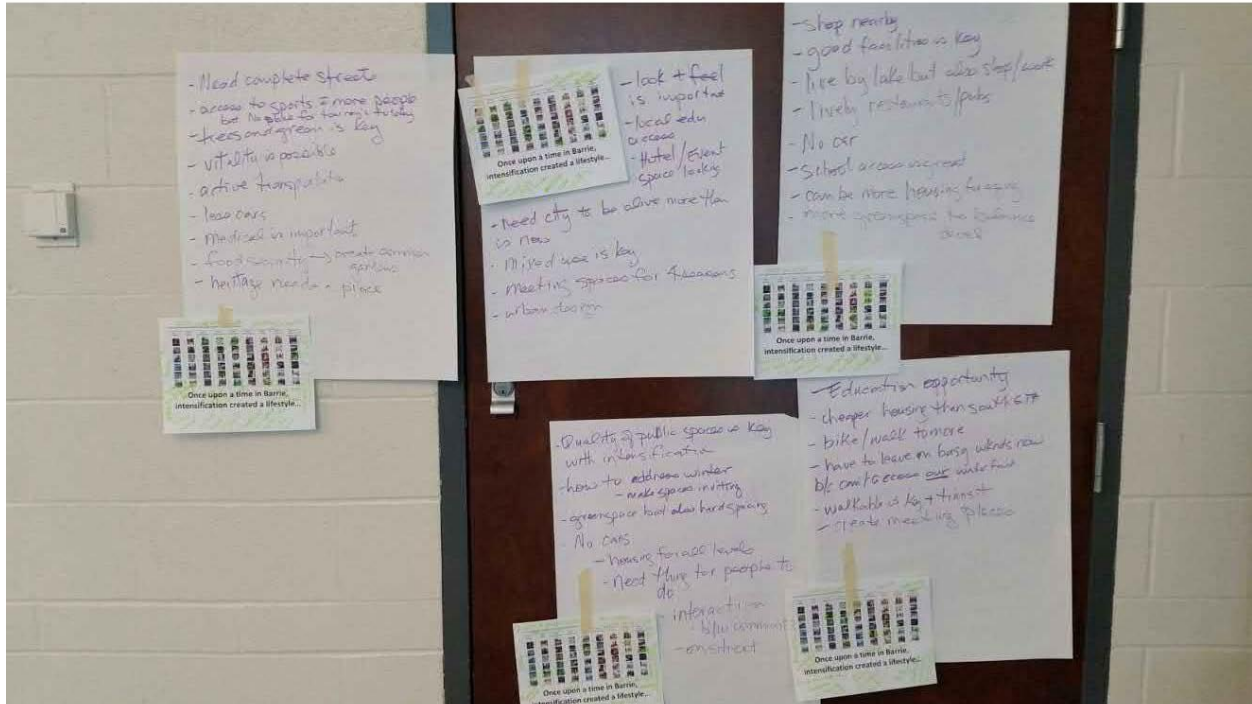 - Need complete street
- access to sports = more people
but No to day
- trees and green is key
- vitality is possible
- active transportation
- less cars
- medical is important
- food → create common
gardens
- heritage needs a place
Once upon a time in Barrie,
intensification created a lifestyle...
- look + feel
is important
- local edu
access
- Hotel/Event
space lacking
- need city to be alive more than
is now
- mixed use is key
- meeting spaces for 4 seasons
- urban design
Once upon a time in Barrie,
intensification created a lifestyle...
- shop nearby
- good facilities is key
- live by lake but also shop/work
- lively restaurants/pubs
- No car
- School access is great
- can be more housing
- more greenspace to balance
Once upon a time in Barrie,
intensification created a lifestyle...
- Quality of public spaces is key
with intensification
- how to address winter
- make spaces inviting
- greenspace but also hard spacing
- No cars
- housing for all levels
- need thing for people to
do
- interaction
- b/w
- on street
Once upon a time in Barrie,
intensification created a lifestyle...
- Education opportunity
- cheaper housing than south GTA
- bike/walk to more
- have to leave on busy wknds now
b/c can't access our waterfront
- walkable is key + transit
- create meeting places
Once upon a time in Barrie,
intensification created a lifestyle...